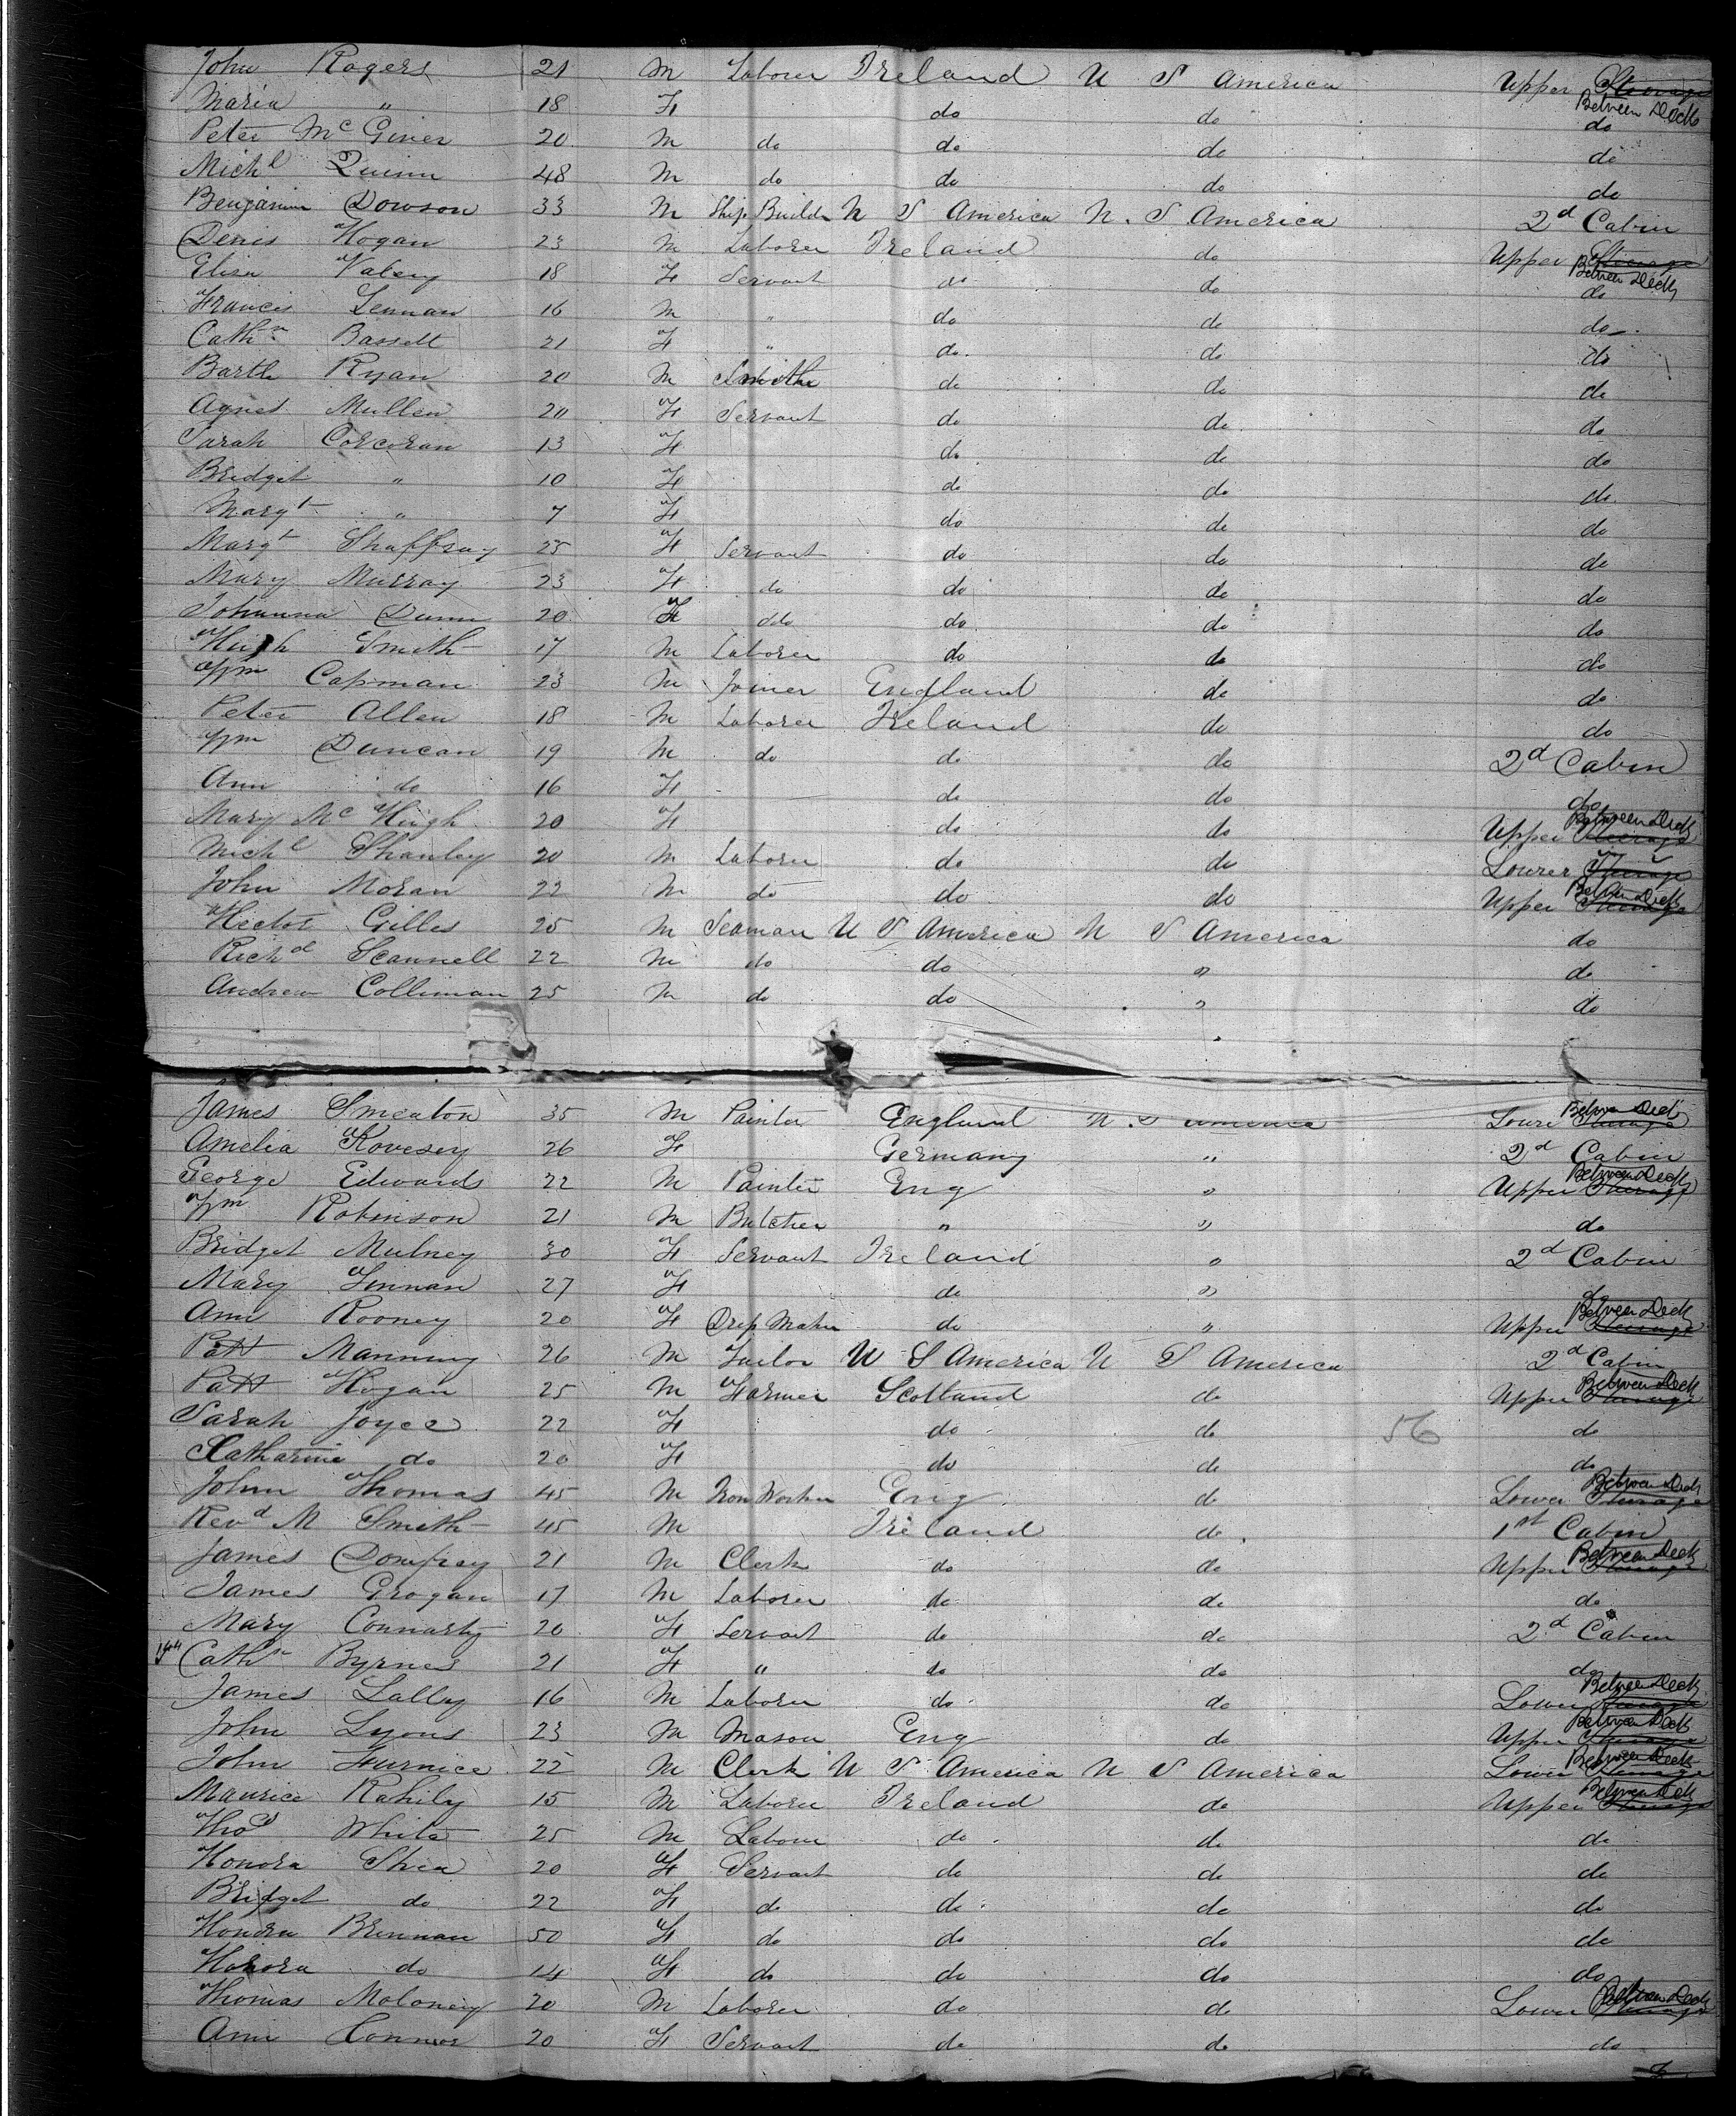 John Rogers 21 M Laborer Ireland U S America Upper Steerage Between Decks
Maria " 18 F do do do
Peter Mc Giver 20 M do do do do
Michl Quinn 48 M do do do do
Benjamin Dowson 33 M Ship Buildr U S America U. S America 2d Cabin
Denis Hogan 23 M Laborer Ireland do Upper Steerage Between Decks
Elisa 18 F Servant do do do
Francis Lennan 16 M " do do do
Cathn Bassett 21 F " do do do
Barth Ryan 20 M Smith do do do
Agnes Mullen 20 F Servant do do do
Sarah Corcoran 13 F do do do
Bridget " 10 F do do do
Margt " 7 F do do do
Margt 25 F Servant do do do
Mary Murray 23 F do do do do
Johanna Dunn 20 F do do do do
Hugh Smith 17 M Laborer do do do
Wm Capman 23 M Joiner England do do
Peter Allen 18 M Laborer Ireland do do
Wm Duncan 19 M do do do 2d Cabin
Ann do 16 F do do do
Mary Mc Hugh 20 F do do Upper Steerage Between Deck
Michl Shanley 20 M Laborer do do Lower Steerage "
John Moran 22 M do do do Upper Steerage Between Deck
Hector Gilles 25 M Seaman U S America U S America do
Richd Scannell 22 M do do " do
Andrew Colliman 25 M do do " do
James Smeaton 35 M Painter England U. S America Lower Steerage Between Deck
Amelia Kovesey 26 F Germany " 2d Cabin
George Edwards 22 M Painter Eng " Upper Steerage Between Deck
Wm Robinson 21 M Butcher " " do
Bridget Mulney 30 F Servant Ireland " 2d Cabin
Mary Finnan 27 F do " do
Ann Rooney 20 F Dress Maker do " Upper Steerage Between Deck
Patt Manning 26 M Tailor U S America U S America 2d Cabin
Patt Hogan 25 M Farmer Scotland do Upper Steerage Between Deck
Sarah Joyce 22 F do do 56 do
Catharine do 20 F do do do
John Thomas 45 M Iron Worker Eng do Lower Steerage Between Deck
Revd M Smith 45 M Ireland do 1st Cabin
James 21 M Clerk do do Upper Steerage Between Deck
James Grogan 17 M Laborer do do do
Mary Connarty 20 F Servant do do 2d Cabin
Cathn Byrnes 21 F " do do do
James Lally 16 M Laborer do do Lower Steerage Between Deck
John Lyons 23 M Mason Eng do Upper Steerage Between Deck
John Furnice 22 M Clerk U S America U S America Lower Steerage Between Deck
Maurice Rahily 15 M Laborer Ireland do Upper Steerage Between Deck
Thos White 25 M Labour do do do
Honora Shea 20 F Servant do do do
Bridget do 22 F do do do do
Honora Brennan 50 F do do do do
Honora do 14 F do do do do
Thomas Moloney 20 M Laborer do do Lower Steerage Between Deck
Ann Connor 20 F Servant do do do